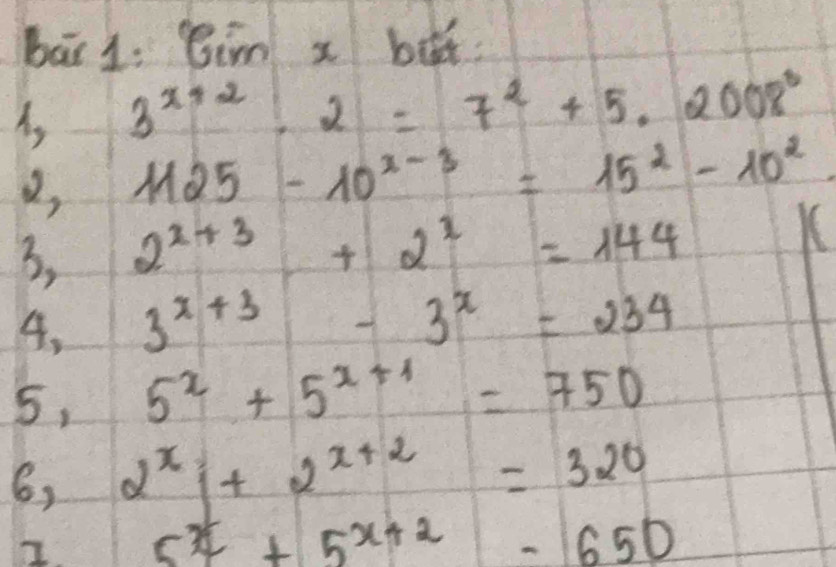 Bài 1: Tìm x biết:
1, 3^{x+2} . 2 = 7² + 5. 2008⁰
2, 1125 - 10^{x-3} = 15² - 10².
3, 2^{x+3} + 2^x = 144
4, 3^{x+3} - 3^x = 234
5, 5^x + 5^{x+1} = 750
6, 2^x + 2^{x+2} = 320
7 5^x + 5^{x+2} = 650